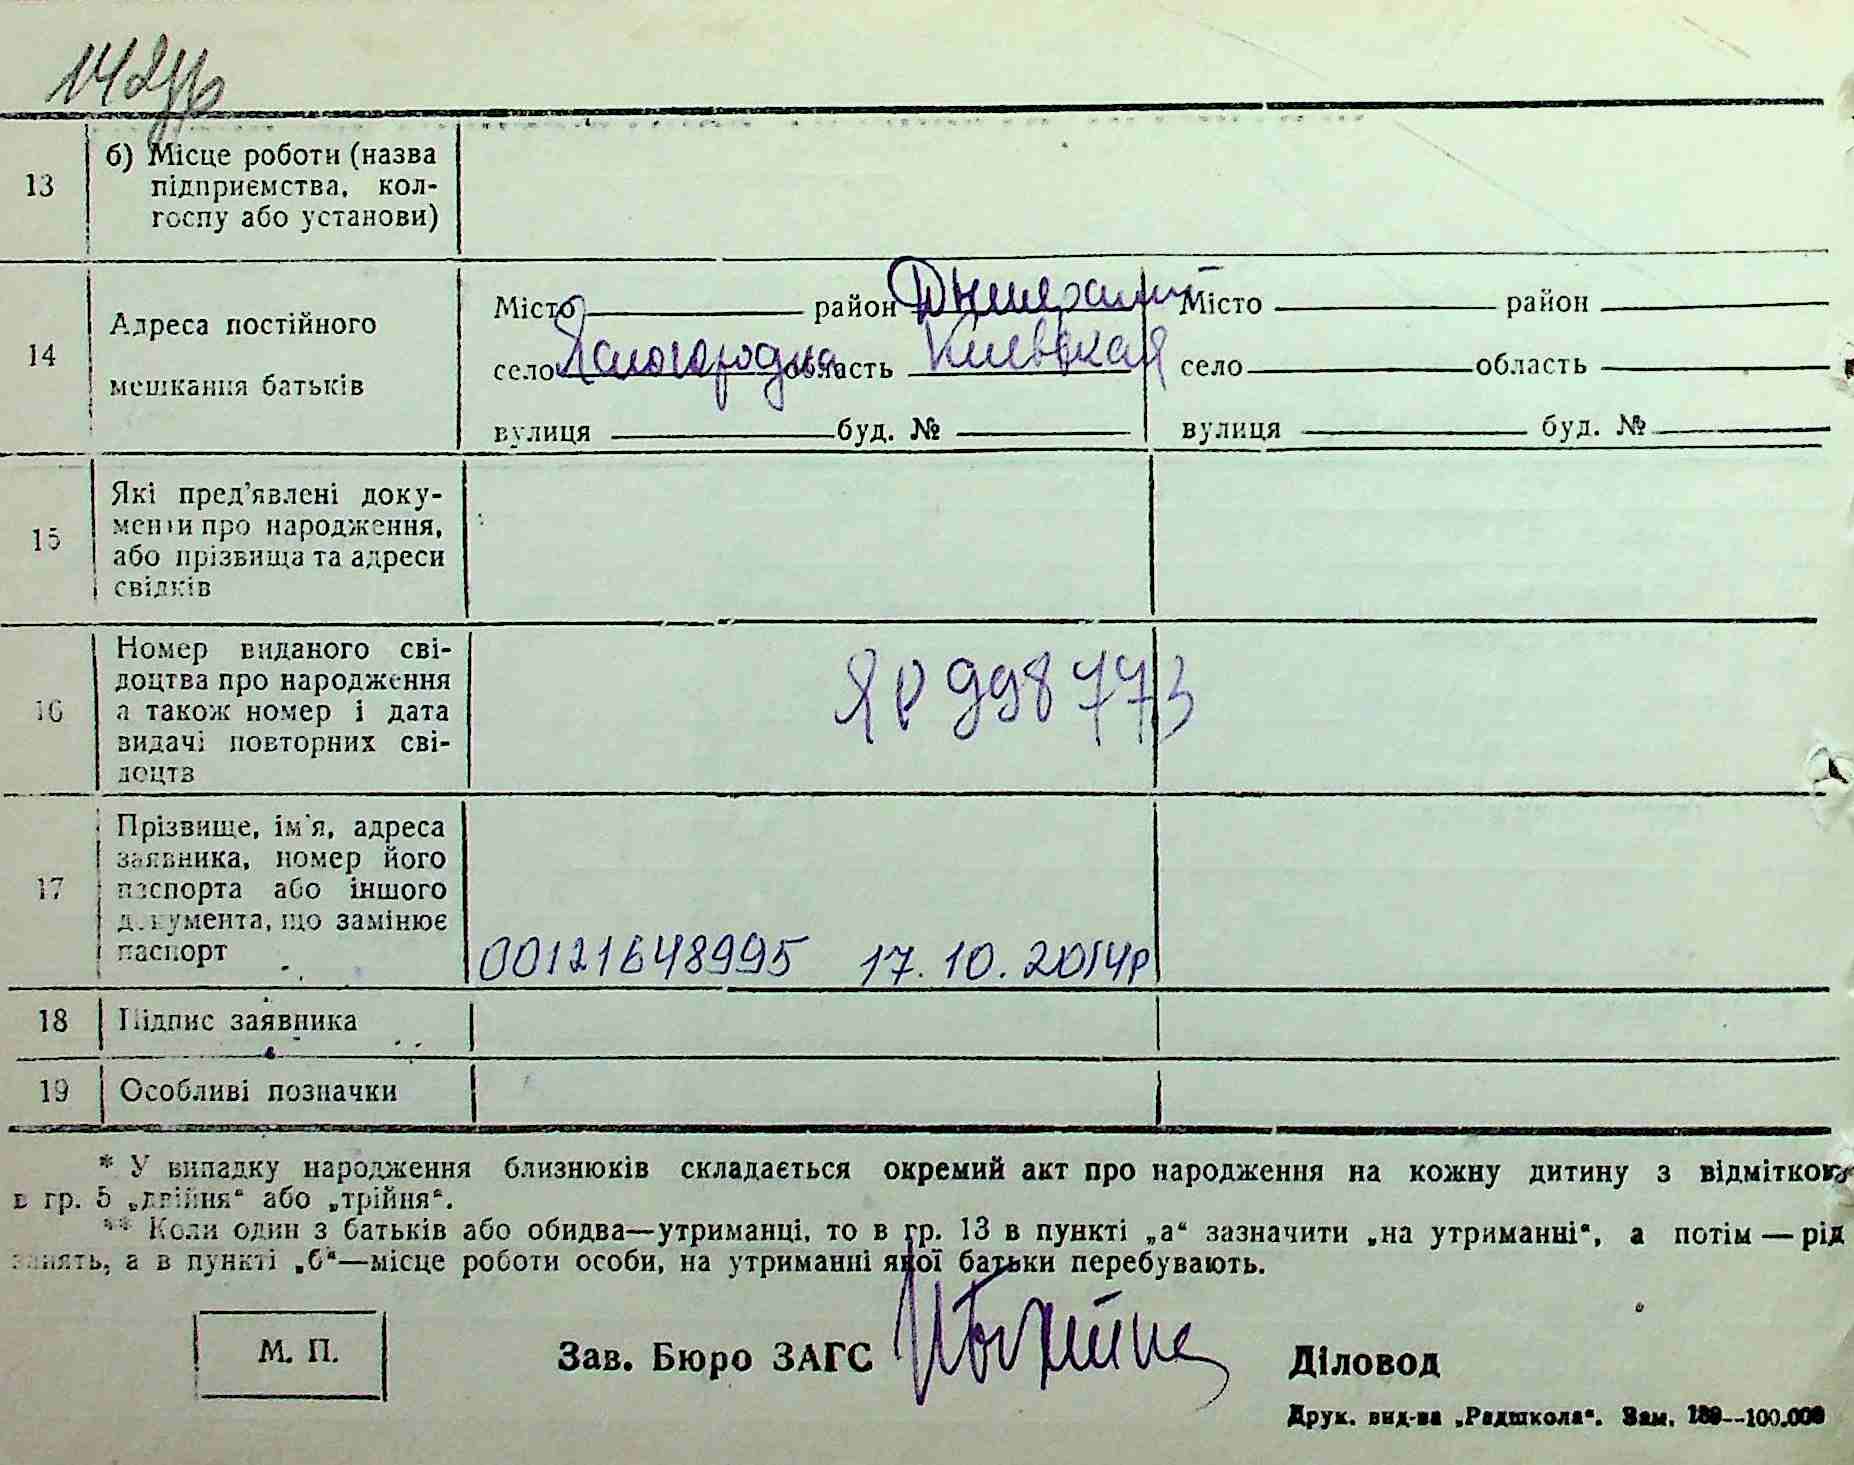 142
13
б) Місце роботи (назва
підприємства, кол-
госпу або установи)
14
Адреса постійного
мешкання батьків
Місто район
село область Киевская
вулиця буд. №
Місто район
село область
вулиця буд. №
15
Які пред’явлені доку-
менти про народження,
або прізвища та адреси
свідків
16
Номер виданого сві-
доцтва про народження
а також номер і дата
видачі повторних сві-
доцтв
998773
17
Прізвище, ім’я, адреса
заявника, номер його
паспорта або іншого
документа, що замінює
паспорт
00121648995 17.10.2014р
18
Підпис заявника
19
Особливі позначки
* У випадку народження близнюків складається окремий акт про народження на кожну дитину з відміткою
в гр. 5 „двійня“ або „трійня“.
** Коли один з батьків або обидва—утриманці, то в гр. 13 в пункті „а“ зазначити „на утриманні“, а потім — рід
занять, а в пункті „б“—місце роботи особи, на утриманні якої батьки перебувають.
М. П.
Зав. Бюро ЗАГС
Діловод
Друк. вид-ва „Радшкола“. Зам. 189--100.000